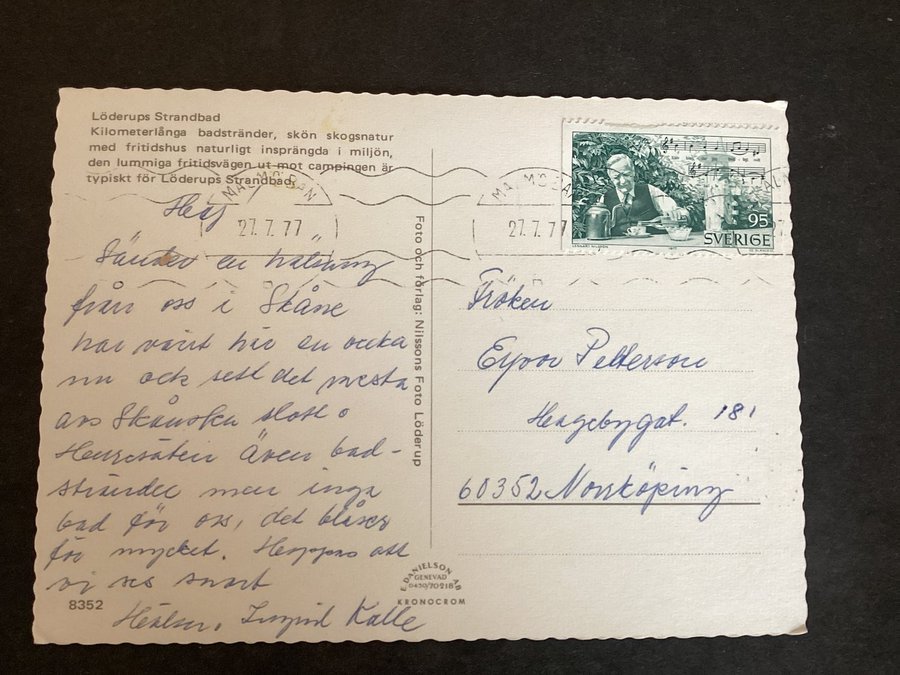 Löderups Strandbad
Kilometerlånga badstränder, skön skogsnatur
med fritidshus naturligt insprängda i miljön,
den lummiga fritidsvägen ut mot campingen är
typiskt för Löderups Strandbad.
MALMÖBAN
27.7.77
Hej
Sänder en hälsning
från oss i Skåne
har varit här en vecka
nu och sett det mesta
av Skånska slott o
Herresäten Även bad-
stränder men inga
bad för oss, det blåser
för mycket. Hoppas att
vi ses snart
Hälsn. Ingrid Kalle
8352
Foto och förlag: Nilssons Foto Löderup
E. DANIELSON AB
GENEVAD
0430/70218
KRONOCROM
MALMÖBAN
27.7.77
95
SVERIGE
Fröken
Eyvor Petterson
Hagebygat. 181
60352 Norrköping